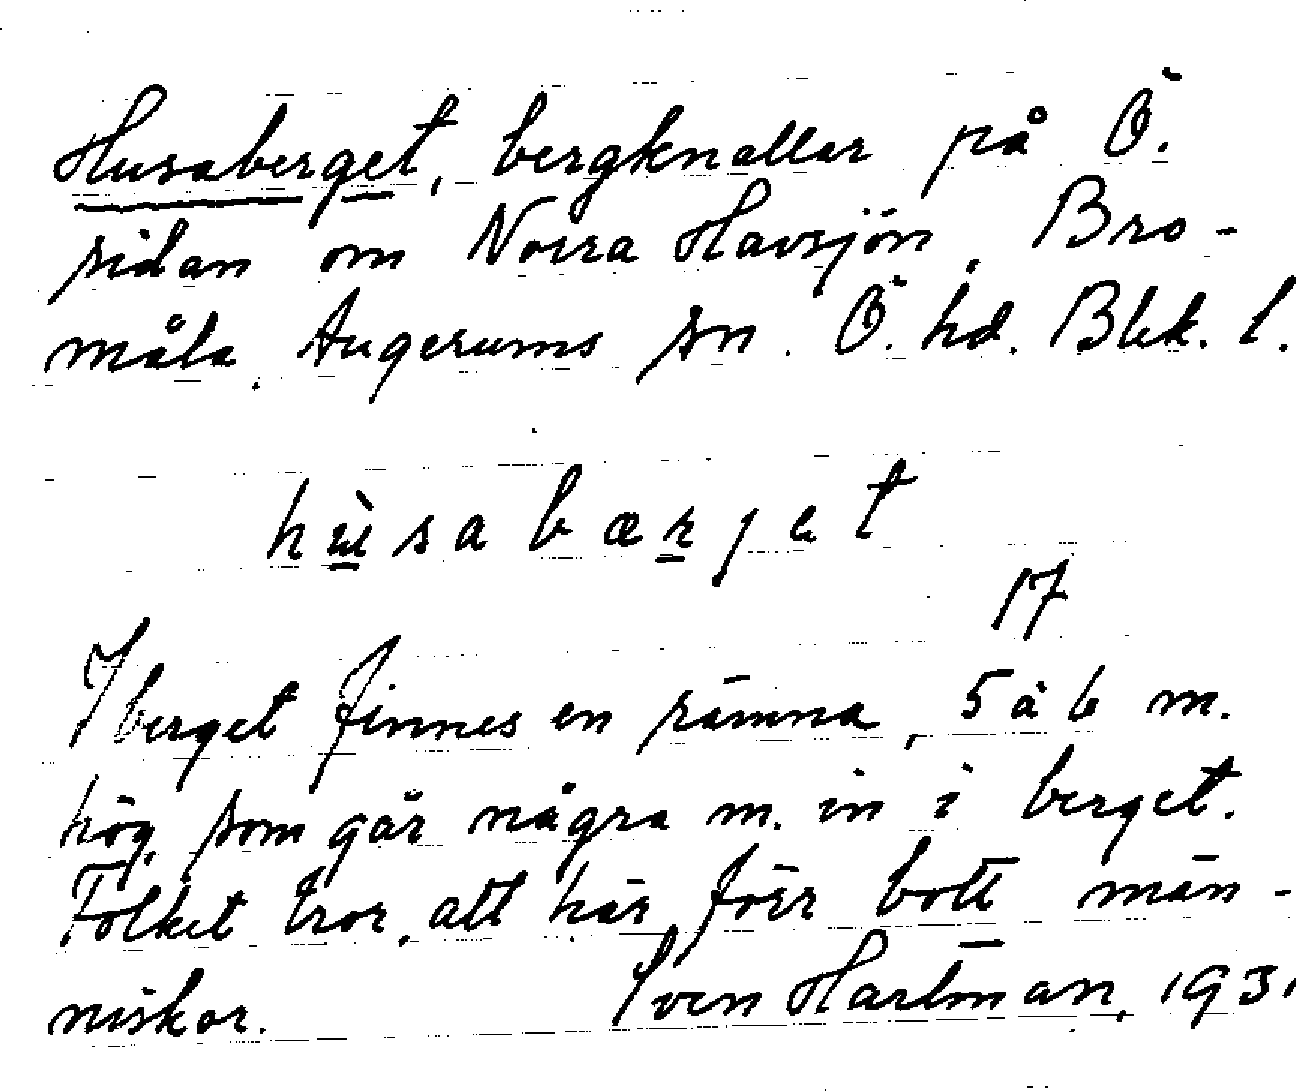 Husaberget, bergknallar på Ö.
sidan om Norra Havsjön, Bro-
måla, Augerums sn. Ö. hd. Blek. l.
hùsabærjet
17
I berget finnes en rämna, 5 à 6 m.
hög, som går några m. in i berget.
Folket tror, att här förr bott män-
niskor. Sven Hartman, 1931